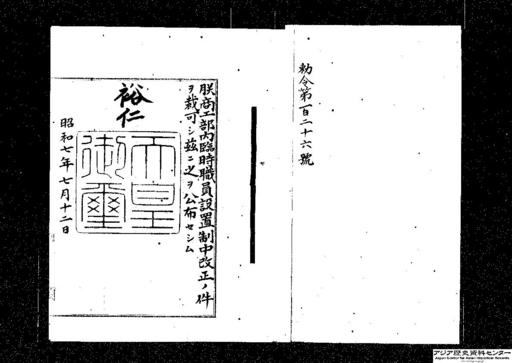 勅令第百二十六號
朕商工部內臨時職員設置制中改正ノ件
ヲ裁可シ玆ニ之ヲ公布セシム
裕仁
天皇御璽
昭和七年七月十二日
アジア歴史資料センター
Japan Center for Asian Historical Records